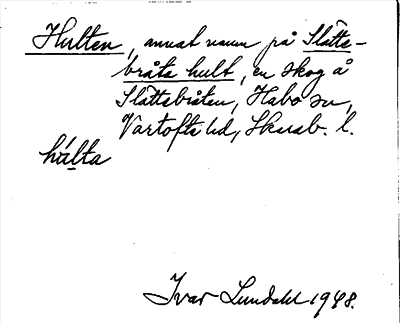 Hulten, annat namn på Slätts-
bråta hult, en skog å
Slättsbråten, Habo sn,
Vartofta hd, Skarab. l.
húlta
Ivar Lundahl 1948.